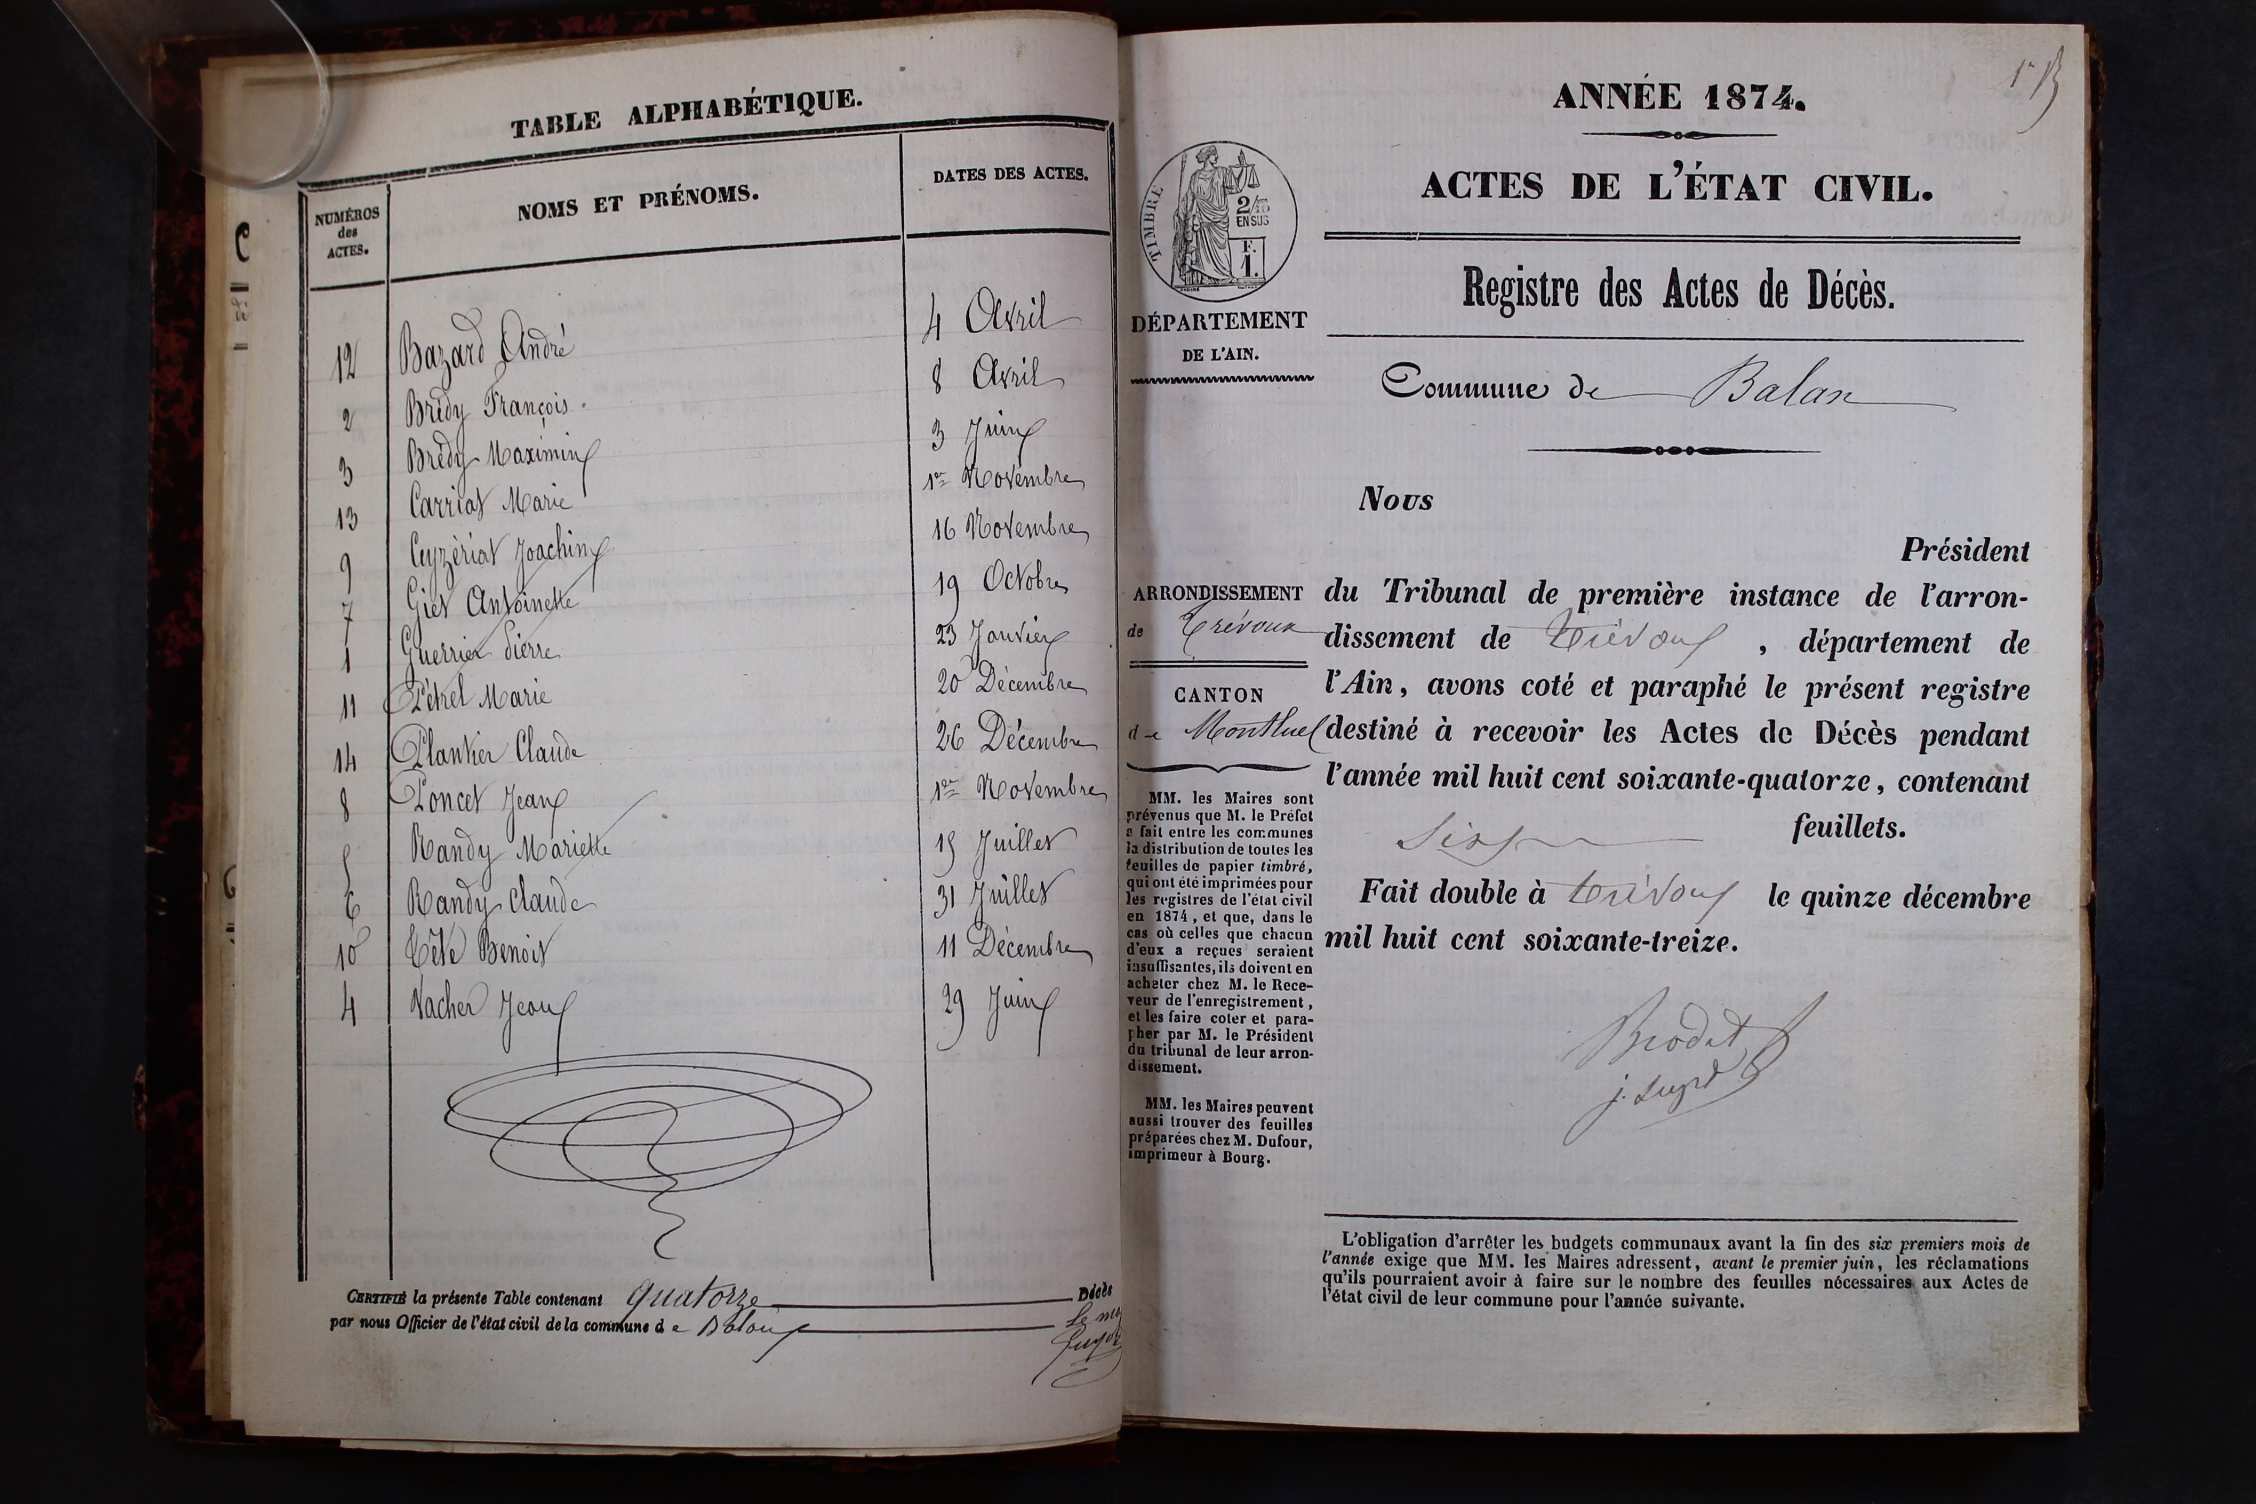 TABLE ALPHABÉTIQUE.
NUMÉROS des ACTES. NOMS ET PRÉNOMS. DATES DES ACTES.
12 Bazard André 4 Avril
2 Brédy François. 8 Avril
3 Brédy Maximin 3 Juin
13 Carriat Marie 1er Novembre
9 Cyzériat Joachim 16 Novembre
7 Giet Antoinette 19 Octobre
1 Guerrier Pierre 23 Janvier
11 Pétrel Marie 20 Décembre
14 Plantier Claude 26 Décembre
8 Poncet Jean 1er Novembre
5 Randy Mariette 15 Juillet
6 Randy Claude 31 Juillet
10 Tête Benoit 11 Décembre
4 Vacher Jean 29 Juin
CERTIFIÉ la présente Table contenant quatorze Décès
par nous Officier de l'état civil de la commune de Balan
ANNÉE 1874.
ACTES DE L'ÉTAT CIVIL.
Registre des Actes de Décès.
Commune de Balan
TIMBRE
2/10
EN SUS
F.
1.
DÉPARTEMENT
DE L'AIN.
ARRONDISSEMENT
de Trévoux
CANTON
de Montluel
MM. les Maires sont
prévenus que M. le Préfet
a fait entre les communes
la distribution de toutes les
feuilles de papier timbré,
qui ont été imprimées pour
les registres de l'état civil
en 1874, et que, dans le
cas où celles que chacun
d'eux a reçues seraient
insuffisantes, ils doivent en
acheter chez M. le Rece-
veur de l'enregistrement,
et les faire coter et para-
pher par M. le Président
du tribunal de leur arron-
dissement.
MM. les Maires peuvent
aussi trouver des feuilles
préparées chez M. Dufour,
imprimeur à Bourg.
Nous
Président
du Tribunal de première instance de l'arron-
dissement de Trévoux, département de
l'Ain, avons coté et paraphé le présent registre
destiné à recevoir les Actes de Décès pendant
l'année mil huit cent soixante-quatorze, contenant
Six feuillets.
Fait double à Trévoux le quinze décembre
mil huit cent soixante-treize.
Brodet
L'obligation d'arrêter les budgets communaux avant la fin des six premiers mois de
l'année exige que MM. les Maires adressent, avant le premier juin, les réclamations
qu'ils pourraient avoir à faire sur le nombre des feuilles nécessaires aux Actes de
l'état civil de leur commune pour l'année suivante.